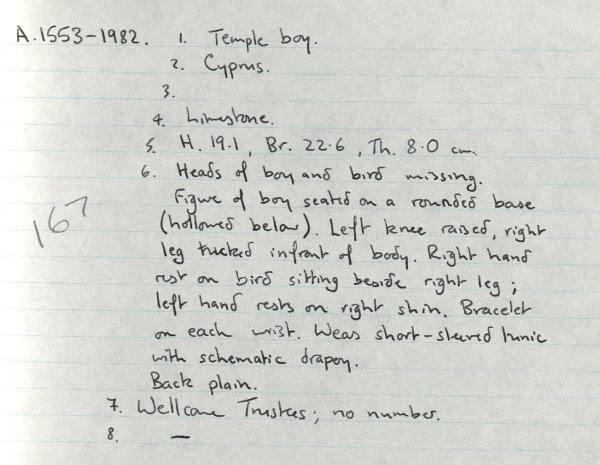 A.1553-1982. 1. Temple boy.
2. Cyprus.
3.
4. Limestone.
5. H. 19.1, Br. 22.6, Th. 8.0 cm.
6. Heads of boy and bird missing.
Figure of boy seated on a rounded base
(hollowed below). Left knee raised, right
leg tucked infront of body. Right hand
rest on bird sitting beside right leg;
left hand rests on right shin. Bracelet
on each wrist. Wears short-sleeved tunic
with schematic drapery.
Back plain.
7. Wellcome Trustees; no number.
8. —
167